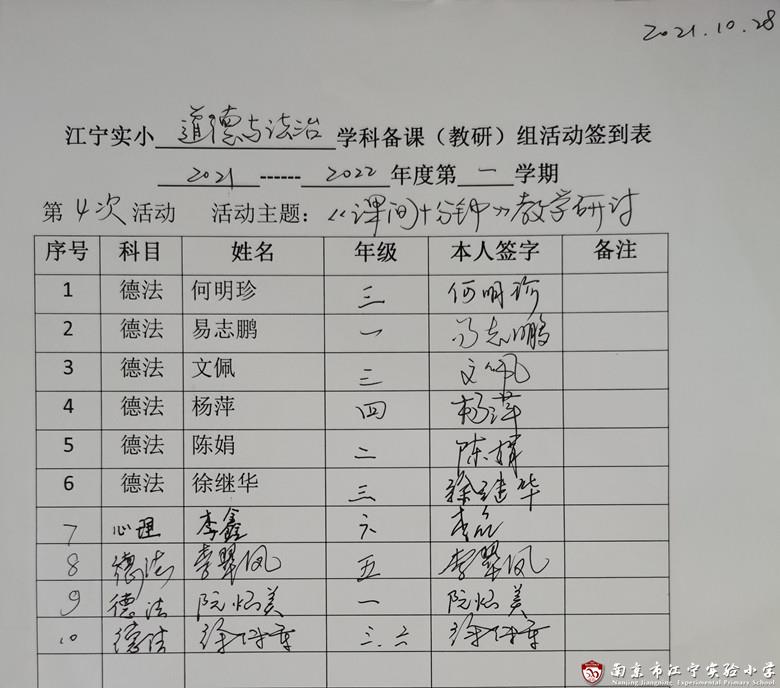 2021.10.28
江宁实小 道德与法治 学科备课（教研）组活动签到表
2021 ------ 2022 年度第 一 学期
第 4次 活动 活动主题：《课间十分钟》教学研讨
序号 科目 姓名 年级 本人签字 备注
1 德法 何明珍 三 何明珍
2 德法 易志鹏 一 易志鹏
3 德法 文佩 三 文佩
4 德法 杨萍 四 杨萍
5 德法 陈娟 二 陈娟
6 德法 徐继华 三 徐继华
7 心理 李鑫 六 李鑫
8 德法 李翠凤 五 李翠凤
9 德法 阮 美 一 阮 美
10 德法 徐 三、六 徐
南京市江宁实验小学
Nanjing Jiangning Experimental Primary School